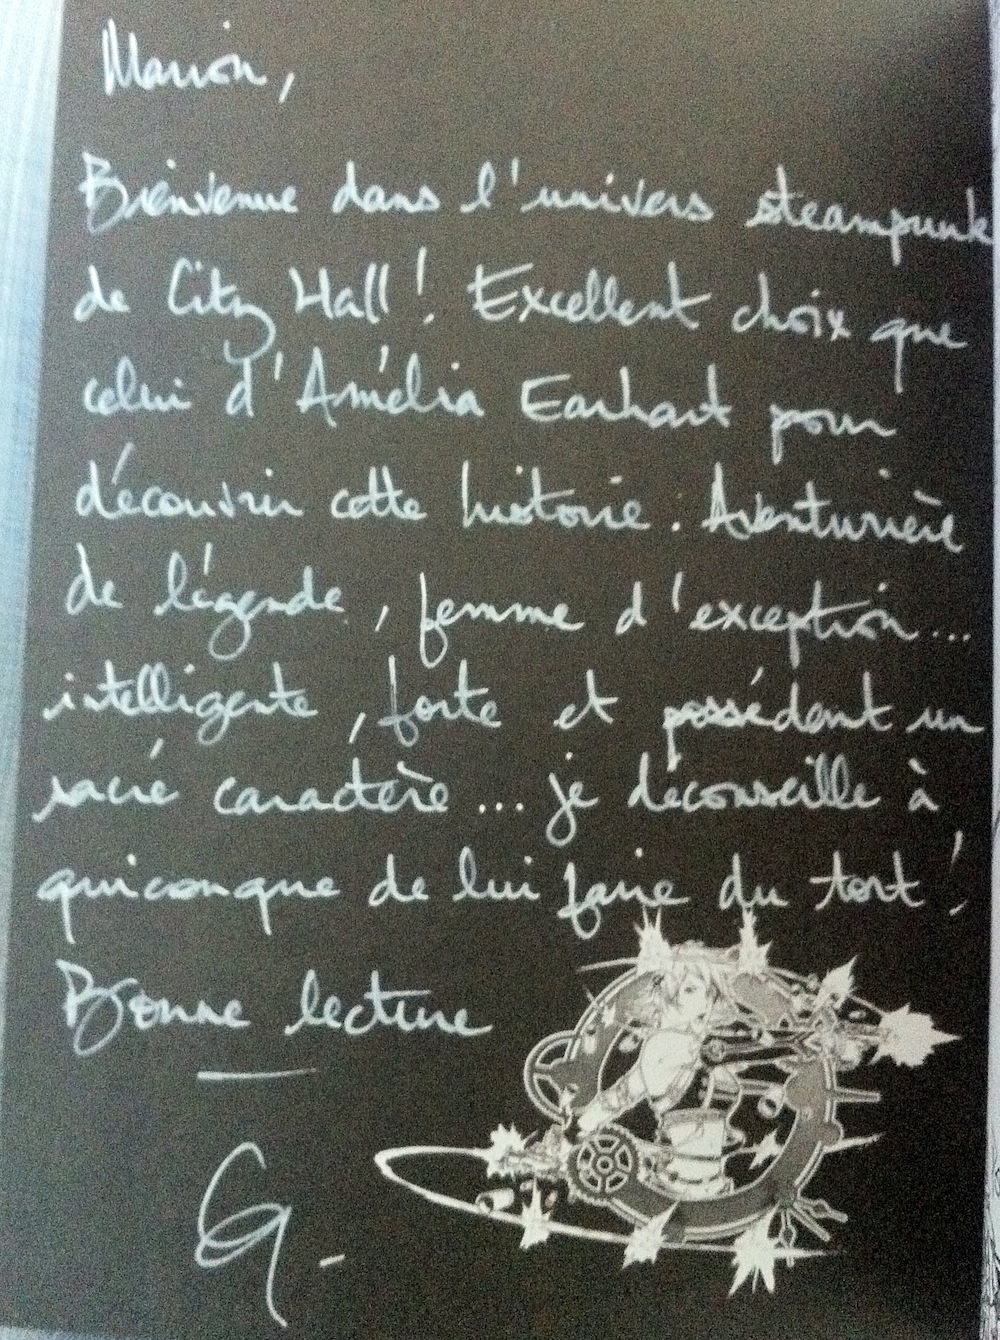 Marion,
Bienvenue dans l'univers steampunk
de City Hall ! Excellent choix que
celui d'Amélia Earhart pour
découvrir cette histoire. Aventurière
de légende, femme d'exception...
intelligente, forte et possédant un
sacré caractère... je déconseille à
quiconque de lui faire du tort !
Bonne lecture